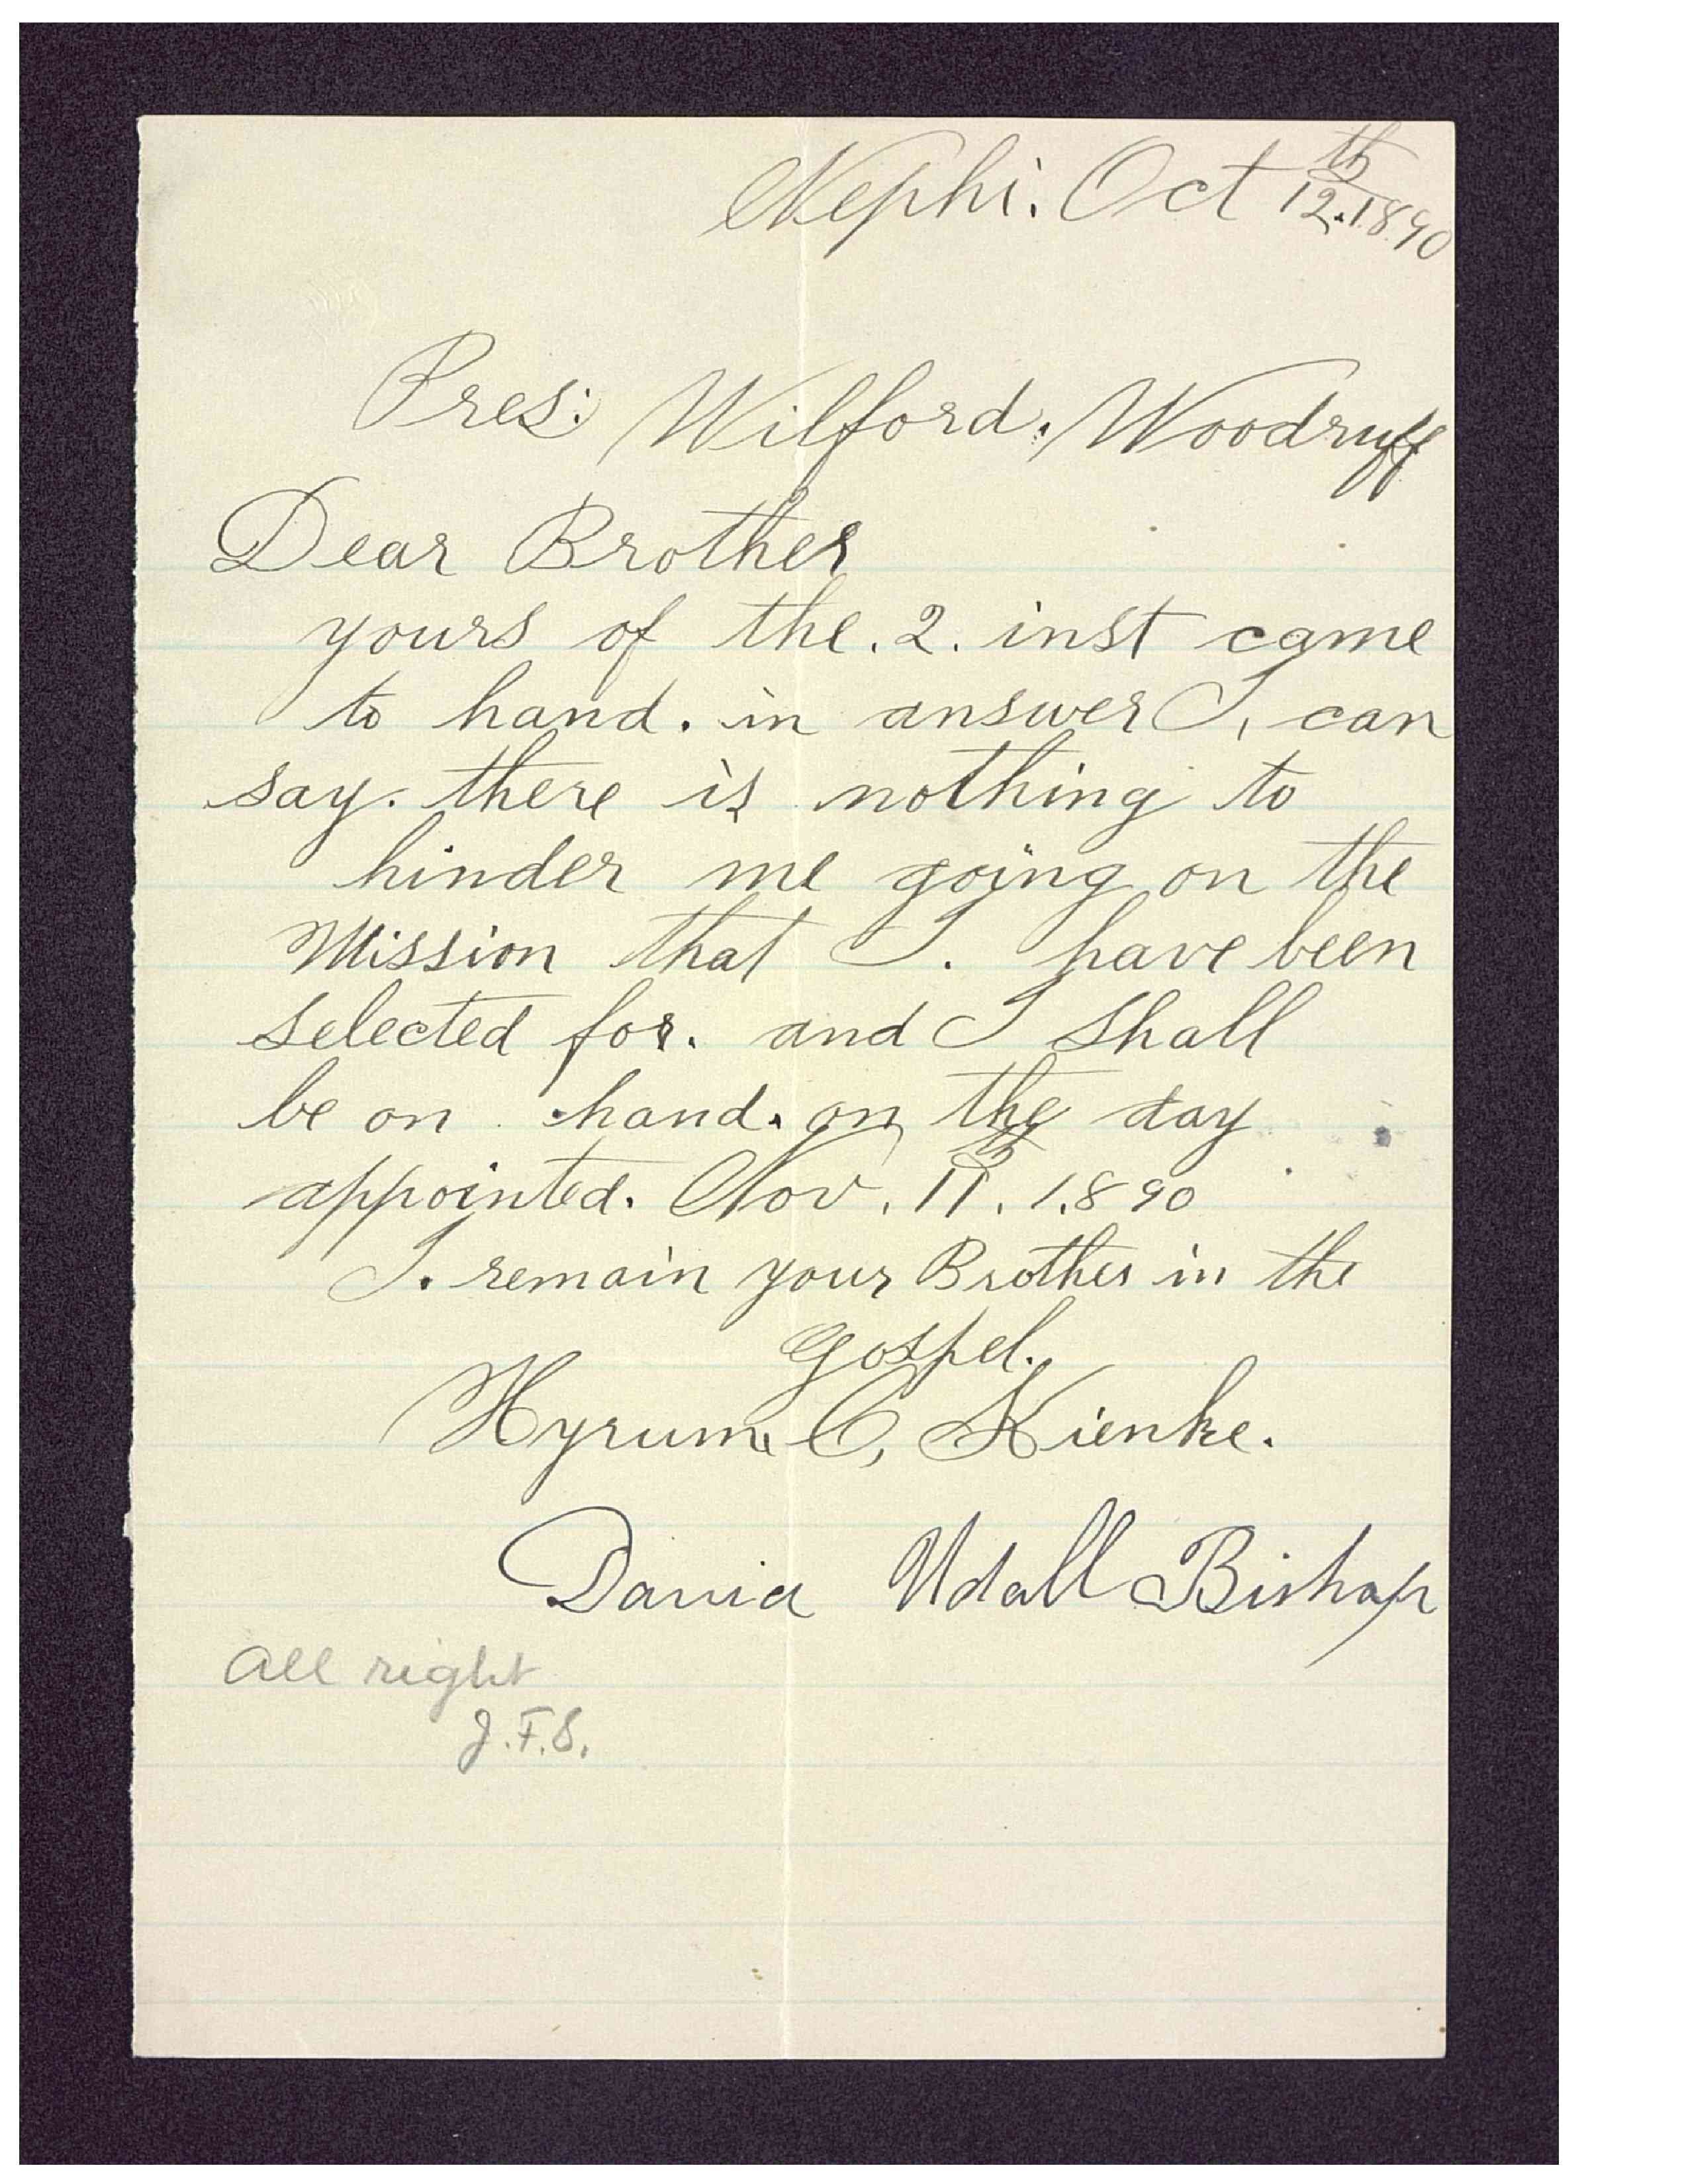 Nephi. Oct 12th. 1890
Pres: Wilford. Woodruff
Dear Brother
yours of the. 2. inst came
to hand. in answer I, can
say. there is nothing to
hinder me going on the
Mission that I. have been
selected for. and I shall
be on hand. on the day
appointed. Nov. 11th. 1.890
I. remain your Brother in the
Gospel.
Hyrum. C, Kienke.
David Udall Bishop
All right
J.F.S.